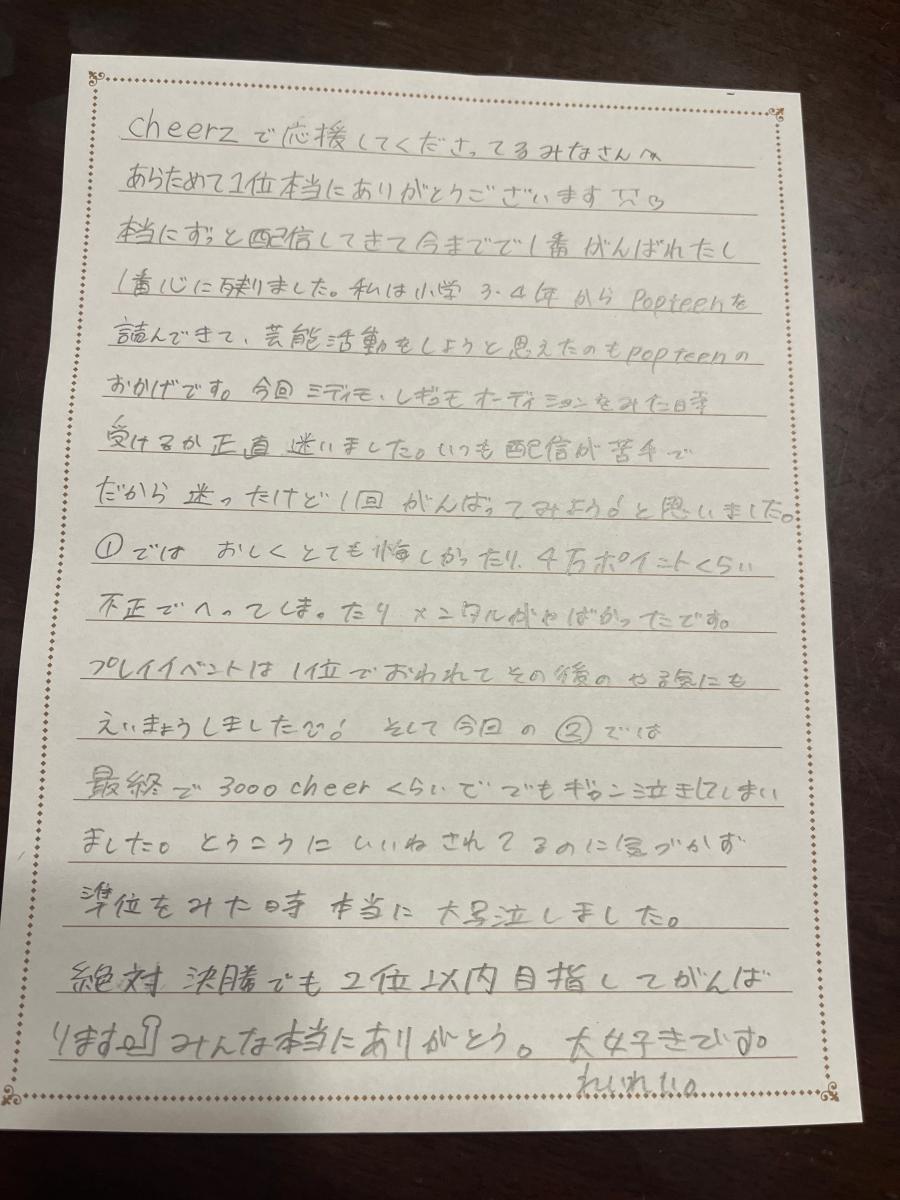 cheerzで応援してくださってるみなさんへ
あらためて1位本当にありがとうございます
本当にずっと配信してきて今までで1番がんばれたし
1番心に残りました。私は小学3・4年からPopteenを
読んできて、芸能活動をしようと思えたのもpopteenの
おかげです。今回ミディモ、レギュモオーディションをみた時
受けるか正直迷いました。いつも配信が苦手で
だから迷ったけど1回がんばってみよう!と思いました。
①ではおしくとても悔しかったり、4万ポイントくらい
不正でへってしまったりメンタルがやばかったです。
プレイイベントは1位でおわれてその後のやる気にも
えいきょうしました! そして今回の②では
最終で3000cheerくらいででもギャン泣きしてしまい
ました。とうこうにいいねされてるのに気づかず
準位をみた時本当に大号泣しました。
絶対決勝でも2位以内目指してがんば
ります。みんな本当にありがとう。大好きです。